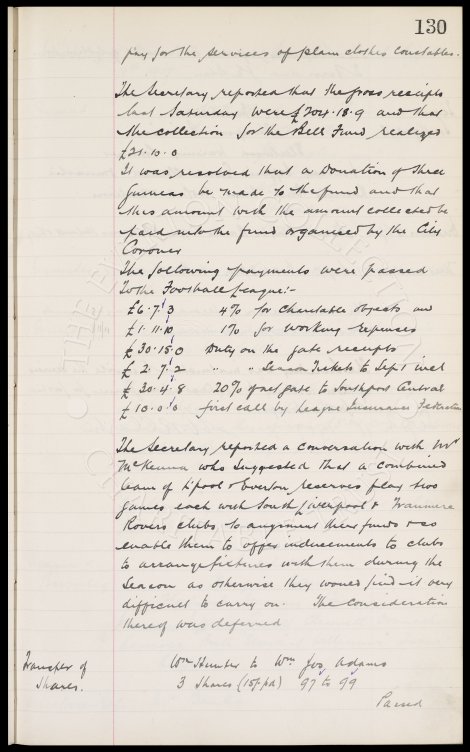 130
pay for the services of plain clothes constables.
The Secretary reported that the gross receipts
last Saturday were £704.18.9 and that
the collection for the Bell Fund realized
£21.10.0
It was resolved that a Donation of three
Guineas be made to the fund and that
this amount with the amount collected be
paid into the fund organised by the City
Coroner
The following payments were passed
To the Football League:-
£6.7.3 4% for Charitable objects and
£1.11.10 1% for working Expenses
£30.18.0 Duty on the gate receipts
£2.7.2 " " Season Tickets to Sep 1 incl
£30.4.8 20% of net gate to Southport Central
£10.0.0 first call by League Insurance Federation
The Secretary reported a conversation with Mr
McKenna who suggested that a combined
team of L'pool & Everton reserves play two
games each with South Liverpool & Tranmere
Rovers clubs to augment their funds & so
enable them to offer inducements to clubs
to arrange fixtures with them during the
Season as otherwise they would find it very
difficult to carry on. The consideration
thereof was deferred
Transfer of
Shares.
Wm Humber to Wm Jos Adams
3 Shares (15/- pd) 97 to 99
Passed